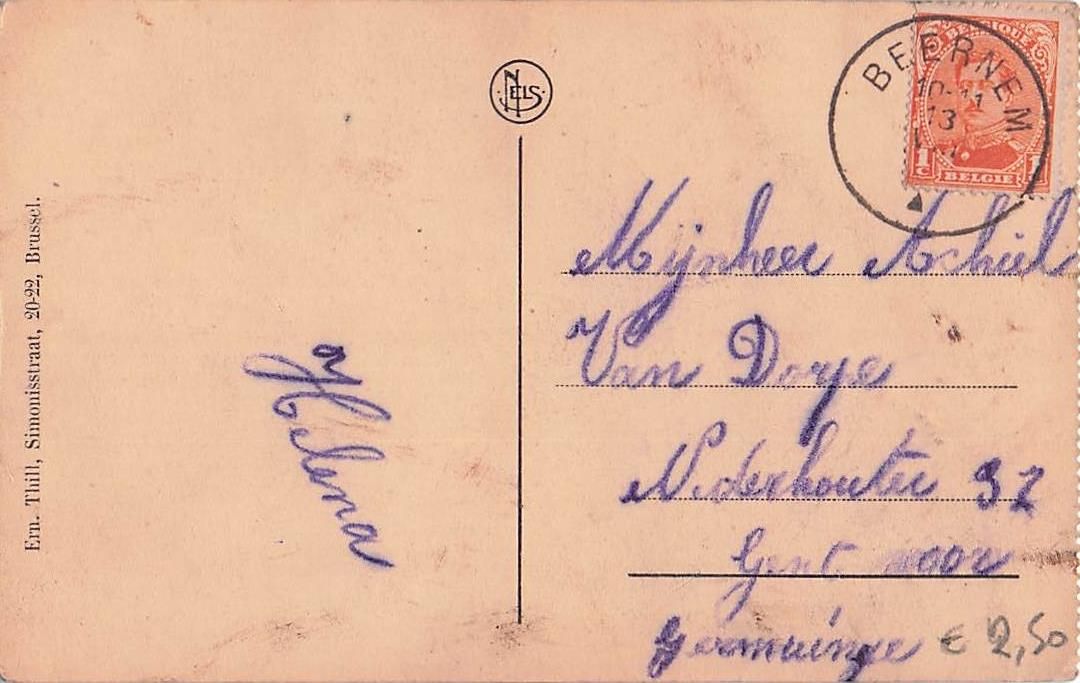 Ern. Thill, Simonisstraat, 20-22, Brussel.
NELS
BEERNEM
10-11
13
BELGIQUE
1 c BELGIE 1
Helena
Mijnheer Achiel
Van Dorpe
Nederhouter 32
Gent voor
Germainne
€ 2,50